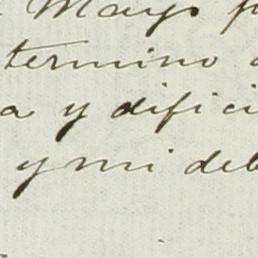 Mayo
termino
a y difici
y mi deb